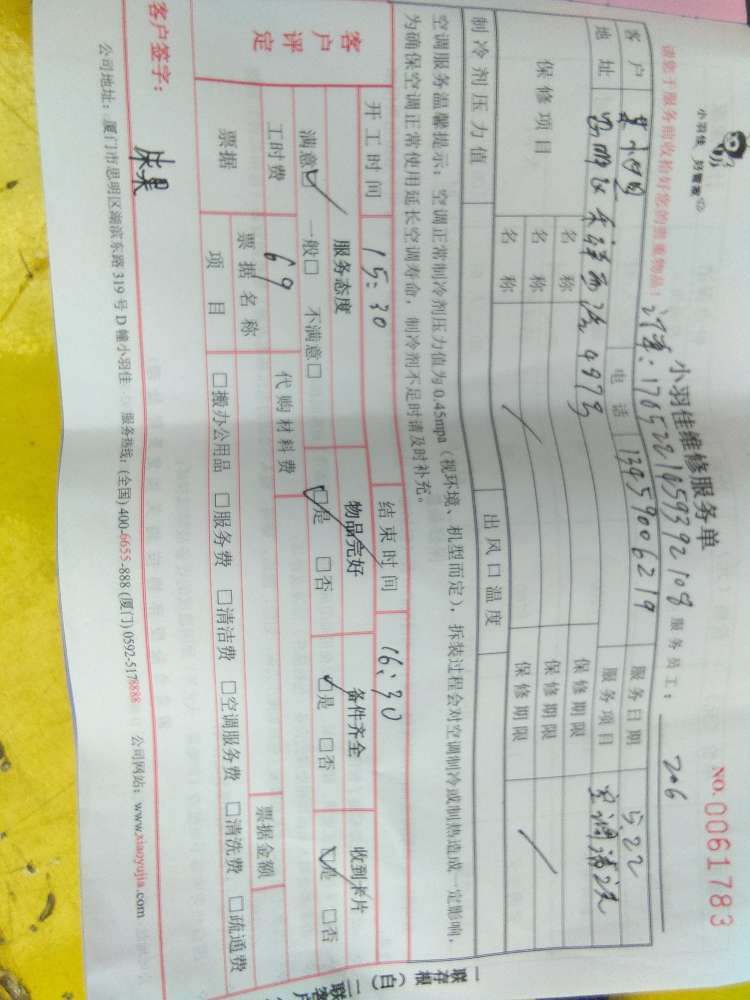 小羽佳 好管家
小羽佳维修服务单
NO. 0061783
请您于服务前收拾好您的贵重物品!
订单: 1705221059392108
服务员工: 206
客户 电话 13959006219 服务日期 5.22
地址 思明区 497号 服务项目 空调清洗
保修项目 名称 / 保修期限 /
名称 保修期限
名称 保修期限
制冷剂压力值 出风口温度
空调服务温馨提示: 空调正常制冷剂压力值为0.45mpa (视环境、机型而定), 拆装过程会对空调制冷或制热造成一定影响,
为确保空调正常使用延长空调寿命, 制冷剂不足时请及时补充。
开工时间 15:30 结束时间 16:30
客户评定 服务态度 物品完好 备件齐全 收到卡片
满意☑ 一般□ 不满意□ ☑是 □否 ☑是 □否 ☑是 □否
工时费 69 代购材料费
票据 票据名称 票据金额
项目 □搬办公用品 □服务费 □清洁费 □空调服务费 □清洗费 □疏通费
客户签字:
公司地址: 厦门市思明区湖滨东路319号D幢小羽佳 服务热线: (全国) 400-6655-888 (厦门) 0592-5178888 公司网站: www.xiaoyujia.com
一联存根(白)